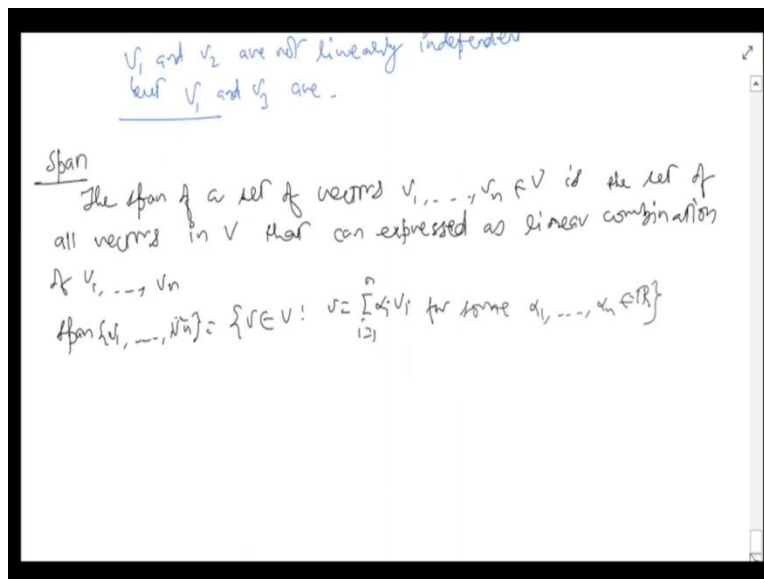 v₁ and v₂ are not linearly independen
but v₁ and v₃ are.
Span
The span of a set of vectors v₁, ..., vₙ ∈ V is the set of
all vectors in V that can expressed as linear combination
of v₁, ..., vₙ
span{v₁, ..., vₙ} = {v ∈ V : v = ∑ᵢ₌₁ⁿ αᵢvᵢ for some α₁, ..., αₙ ∈ ℝ}